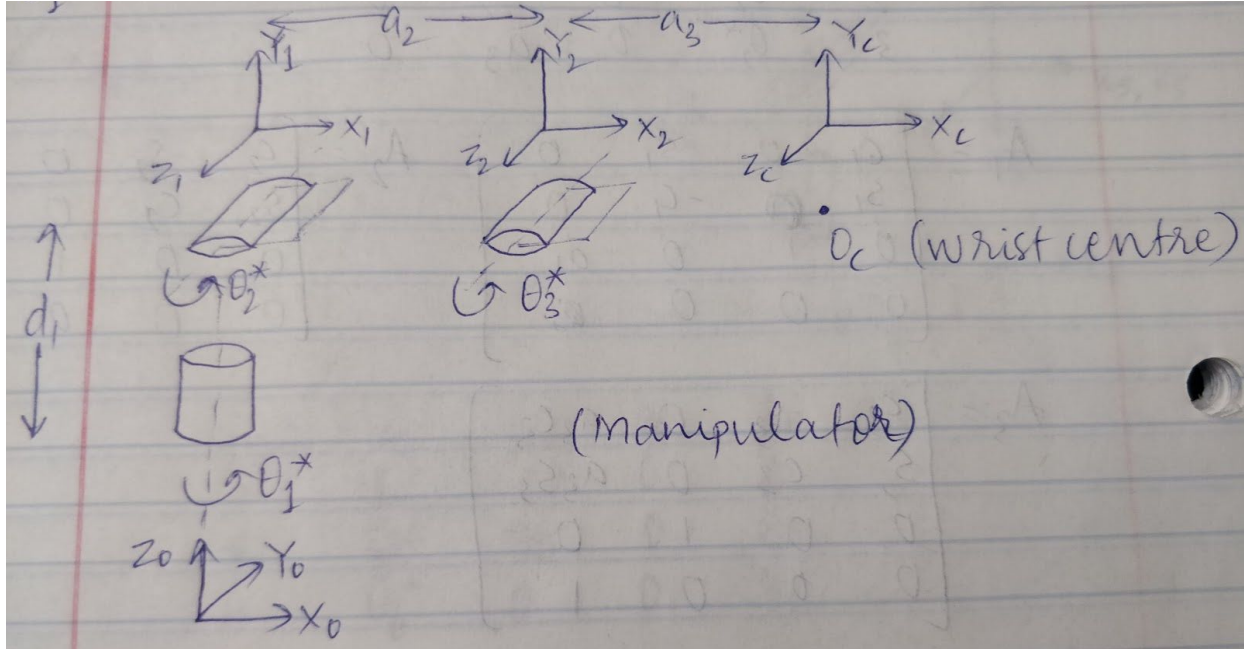 a₂ a₃
Y₁ Y₂ Y_c
X₁ X₂ X_c
Z₁ Z₂ Z_c
O_c (wrist centre)
θ₂* θ₃*
d₁
(manipulator)
θ₁*
Z₀ Y₀
X₀